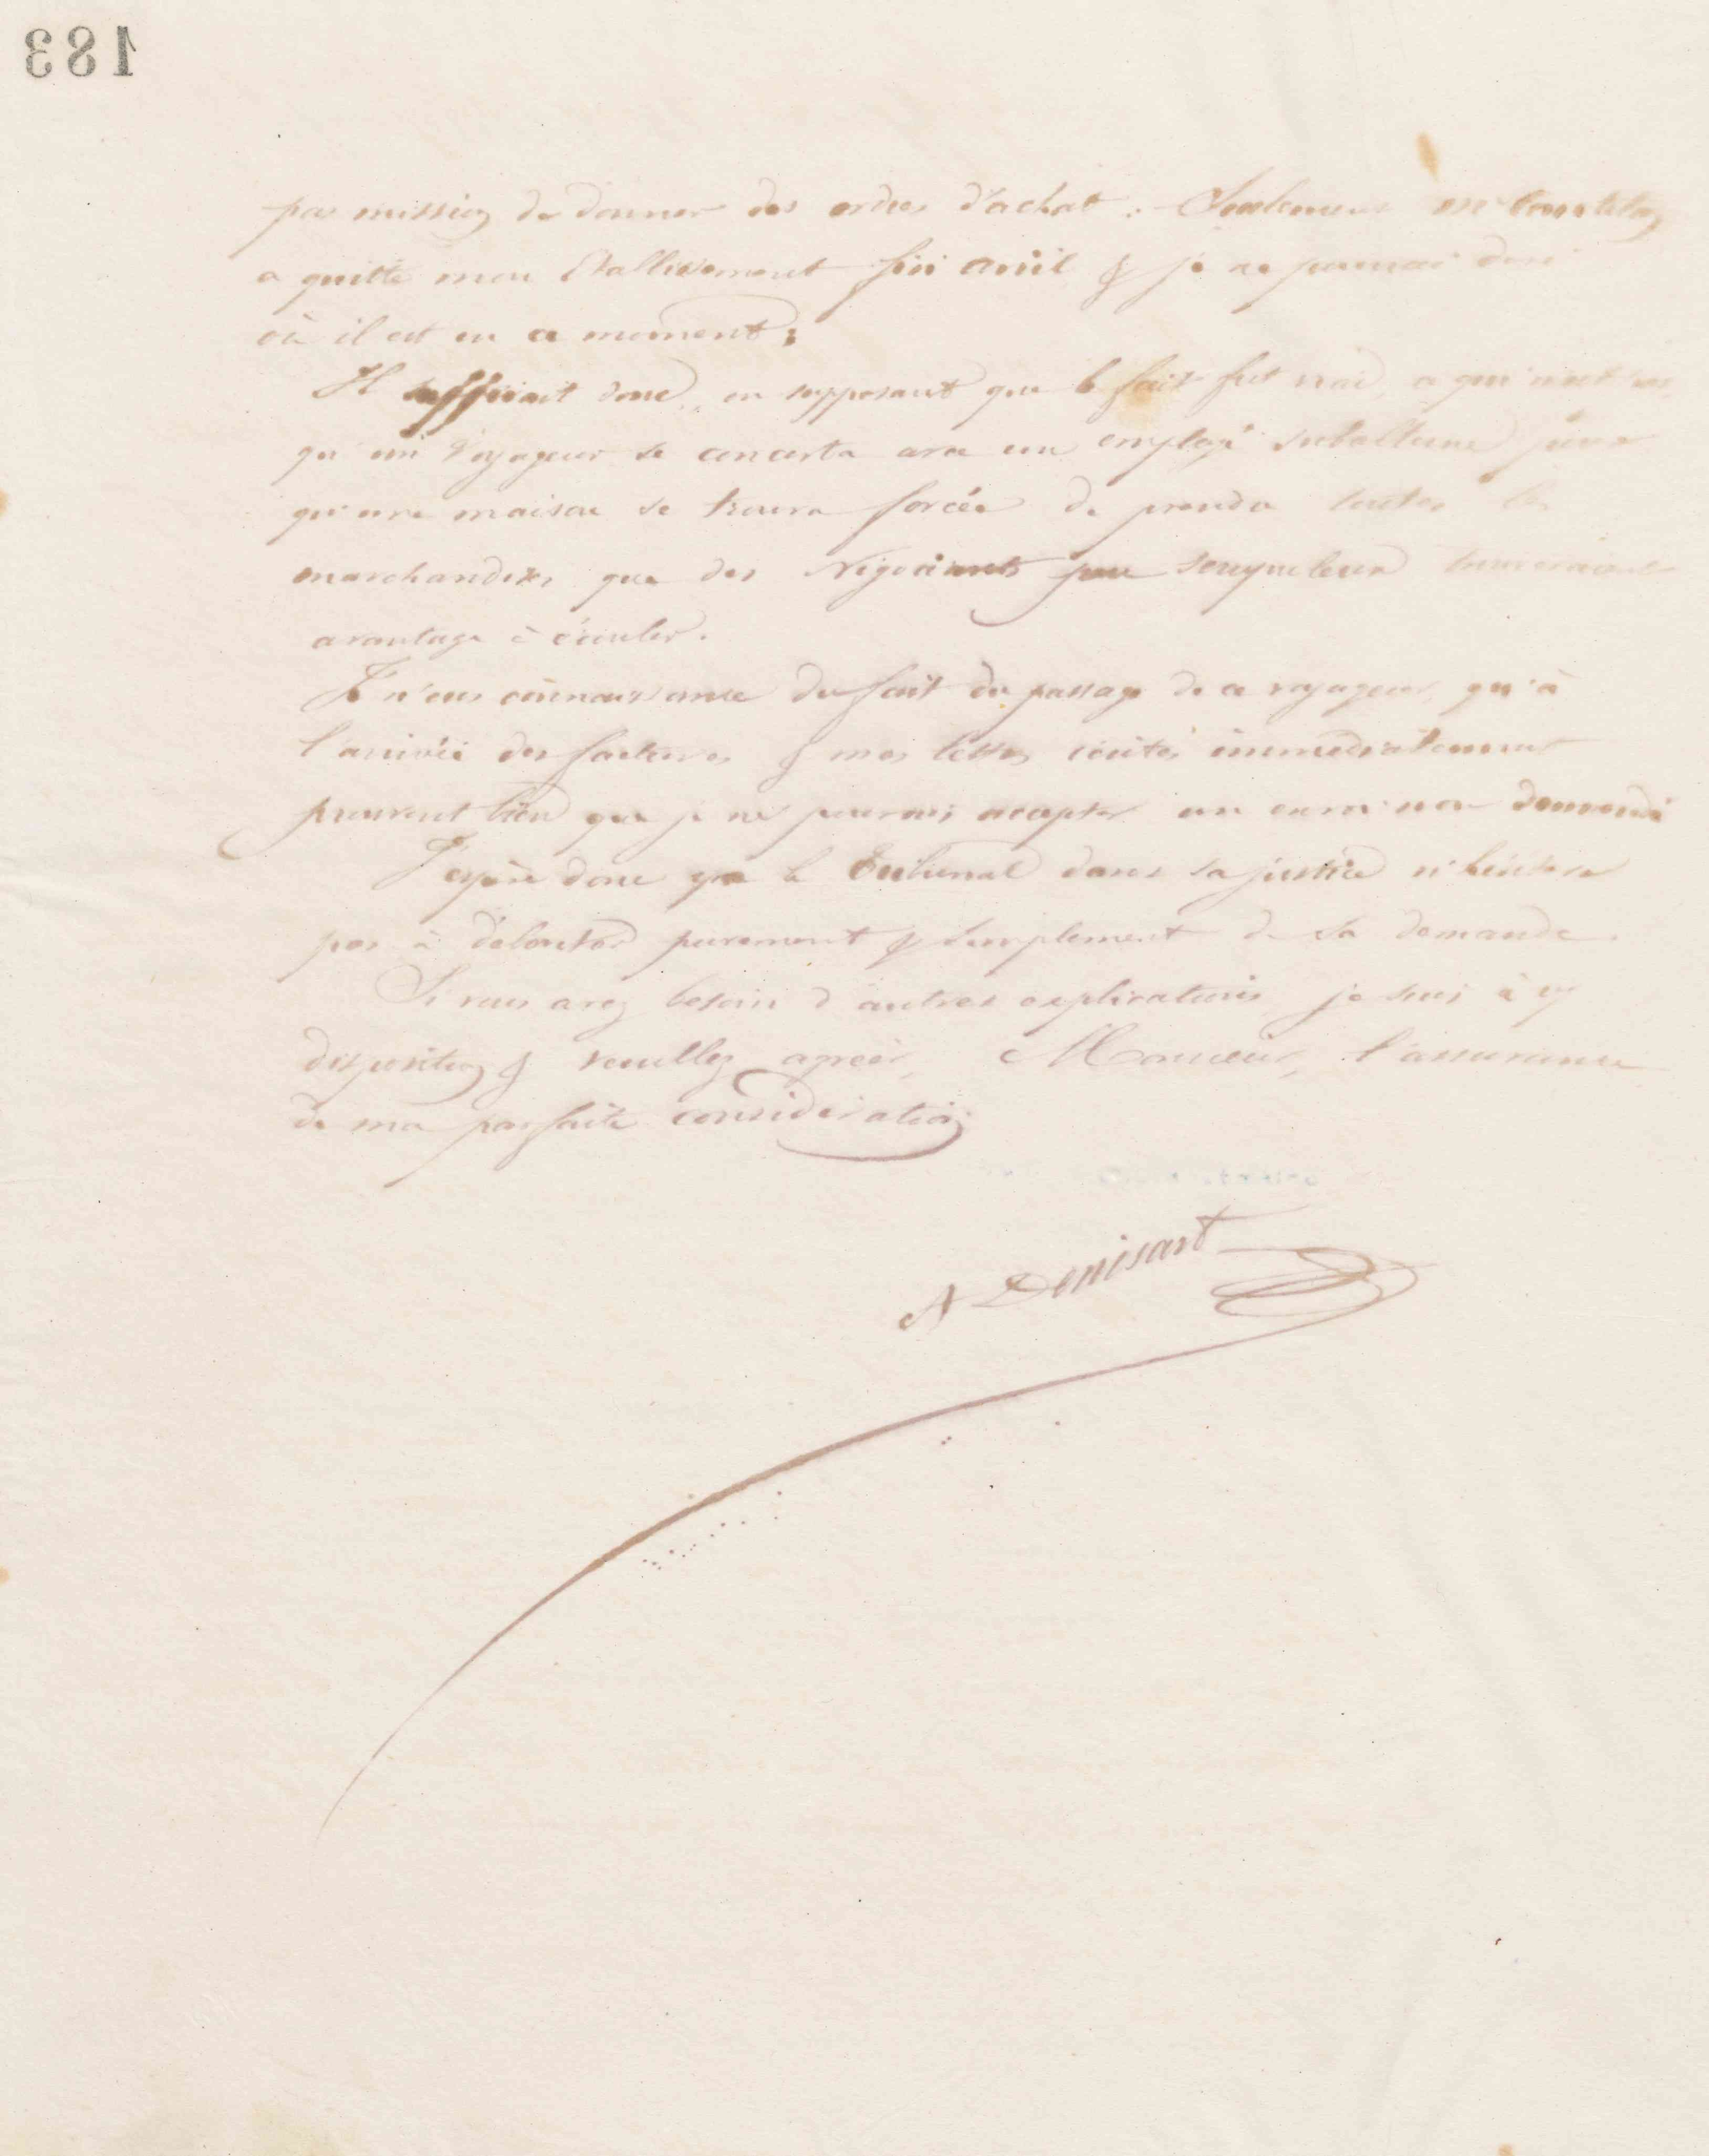 183
pas mission de donner des ordres d'achat : Seulement
a quitté mon Etablissement fin avril & je ne pourrai dire
où il est en ce moment ;
Il suffirait donc, en supposant que le fait fut vrai, ce qui n'est pas,
qu'un Voyageur se concerta avec un employé subalterne pour
qu'une maison se trouva forcée de prendre toutes les
marchandises que des Négociants peu scrupuleux trouveraient
avantage à écouler.
Je n'eus connaissance du fait du passage de ce voyageur qu'à
l'arrivée des factures & mes lettres écrites immédiatement
prouvent bien que je ne pouvais accepter un envoi non demandé
J'espère donc que le Tribunal dans sa justice n'hésitera
pas à débouter purement & simplement de sa demande.
Si vous avez besoin d'autres explications je suis à
disposition & veuillez agréer, Monsieur, l'assurance
de ma parfaite considération
A Denisart